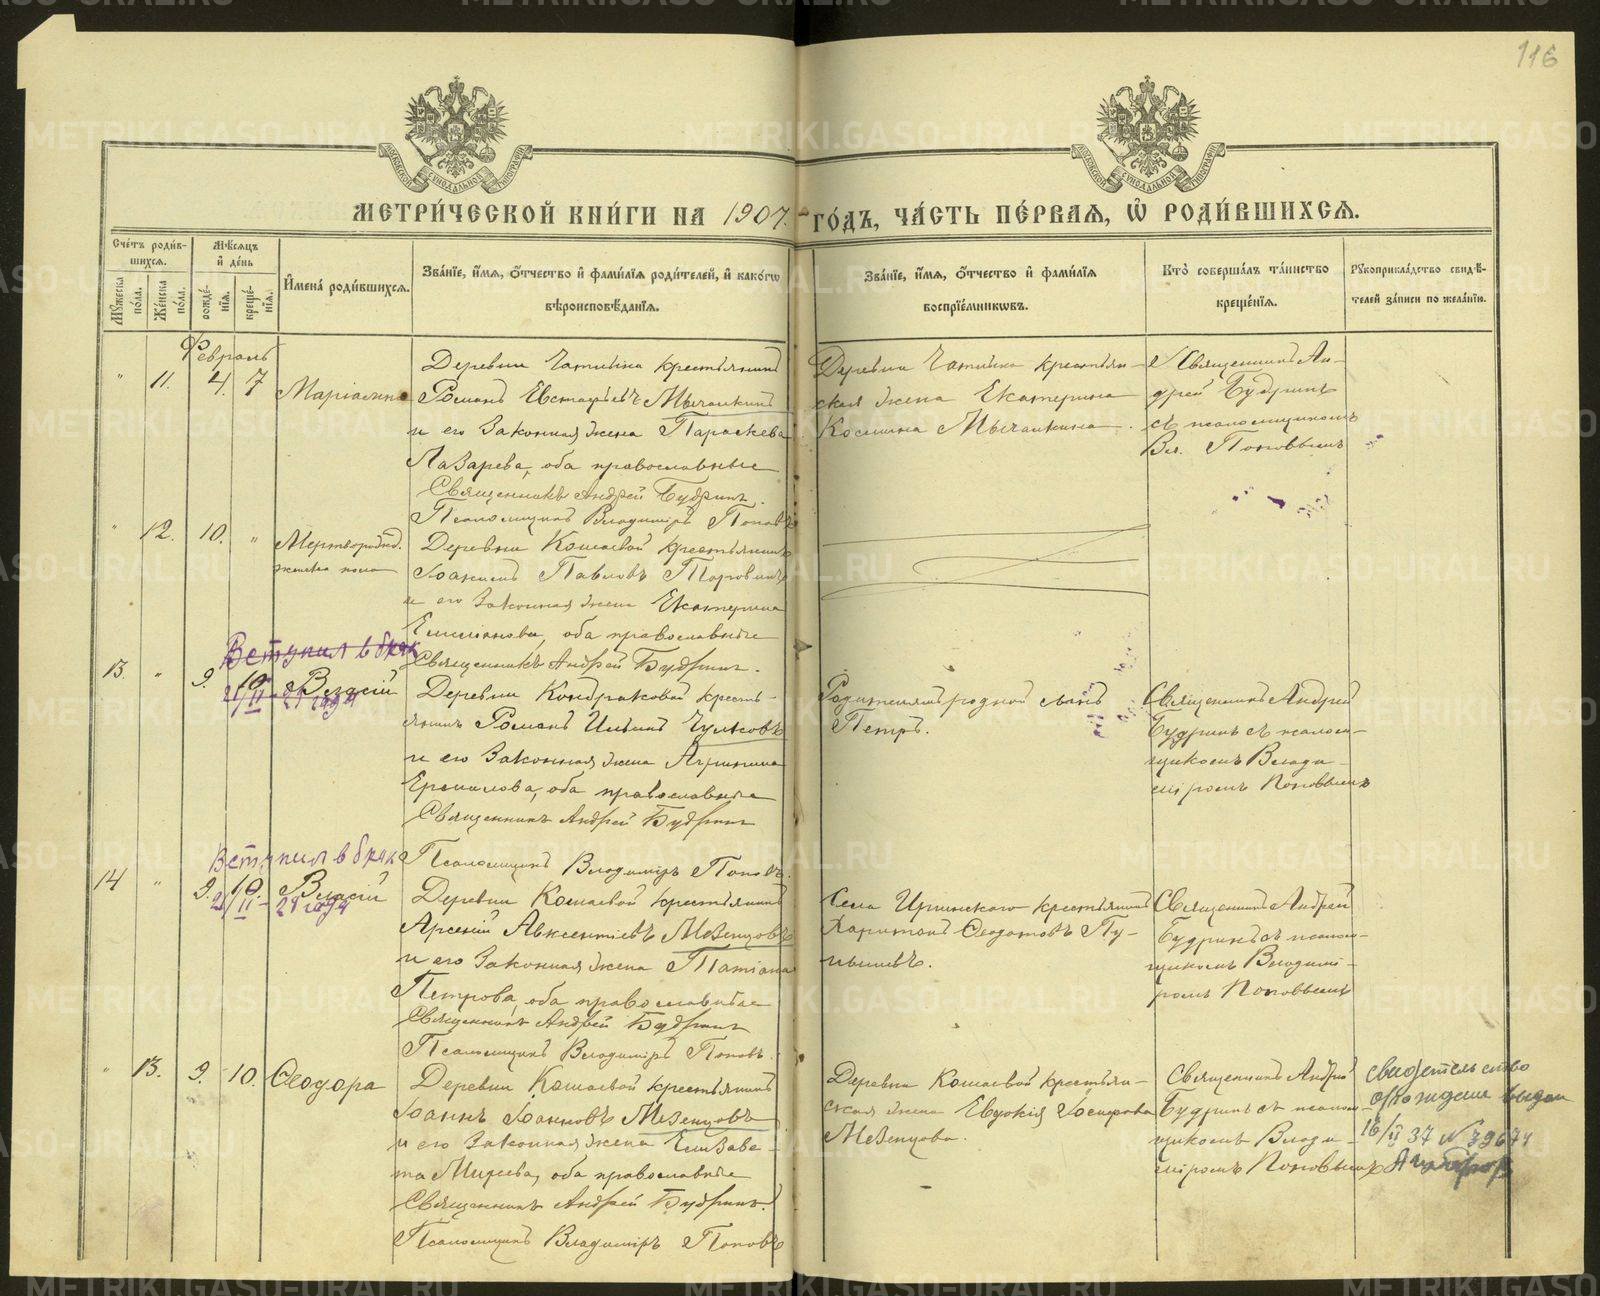 116
МЕТРИ́ЧЕСКОЙ КНИ́ГИ НА 1907 ГО́ДЪ, ЧА́СТЬ ПЕ́РВАЯ, Ѡ҆ РОДИ́ВШИХСЯ.
Сче́тъ роди́вшихся.
Мꙋ́жеска по́ла.
Же́нска по́ла.
Мѣ́сяцъ и҆ де́нь
рожде́нїя.
креще́нїя.
И҆мена̀ роди́вшихся.
Зва́нїе, и҆́мя, ѻ҆́тчество и҆ фами́лїя роди́телей, и҆ како́гѡ
вѣроисповѣ́данїя.
Зва́нїе, и҆́мя, ѻ҆́тчество и҆ фами́лїя
воспрїе́мникѡвъ.
Кто̀ соверша́лъ та́инство
креще́нїя.
Рꙋкоприкла́дство свидѣ́-
телей за́писи по жела́нїю.
Февраль
" 11. 4. 7
Деревни крестьянинъ
Романъ Евстафьевъ Мычалкинъ
и его законная жена Параскева
Лазарева, оба православные
Священникъ Андрей Будринъ.
Псаломщикъ Владиміръ Поповъ
Деревни крестьян-
ская жена Екатерина
Косьмина Мычалкина.
Священникъ Ан-
дрей Будринъ
съ псаломщикомъ
Вл. Поповымъ
" 12. 10. "
Мертворожд.
женска пола
Деревни Кошаевой крестьянинъ
Іоакимъ Павловъ
и его законная жена Екатерина
оба православные
Священникъ Андрей Будринъ.
Вступил в брак
21/II - 21 года
13. " 9. 10. Власій
Деревни Кондраковой кресть-
янинъ Романъ Ильинъ Чулковъ
и его законная жена Агрипина
Ермилова, оба православные
Священникъ Андрей Будринъ
Псаломщикъ Владиміръ Поповъ.
Родителямъ родной сынъ
Петръ.
Священникъ Андрей
Будринъ съ псалом-
щикомъ Влади-
міромъ Поповымъ
Вступил в брак
21/II - 21 года
14 " 9. 10. Власій
Деревни Кошаевой крестьянинъ
Арсеній Авксентіевъ Мезенцовъ
и его законная жена Татіана
Петрова, оба православные
Священникъ Андрей Будринъ
Псаломщикъ Владиміръ Поповъ.
Села Иргинского крестьянинъ
Харитонъ Ѳеодотовъ Пу-
Священникъ Андрей
Будринъ съ псалом-
щикомъ Владимі-
ромъ Поповымъ
" 13. 9. 10. Ѳеодора
Деревни Кошаевой крестьянинъ
Іоаннъ Іоанновъ Мезенцовъ
и его законная жена Елизаве-
та оба православные
Священникъ Андрей Будринъ.
Псаломщикъ Владиміръ Поповъ
Деревни Кошаевой крестьян-
ская жена Евдокія
Мезенцова.
Священникъ Андрей
Будринъ съ псалом-
щикомъ Влади-
міромъ Поповымъ
свидетельство
о рождении выдан
16/II 37 № 79674
METRIKI.GASO-URAL.RU